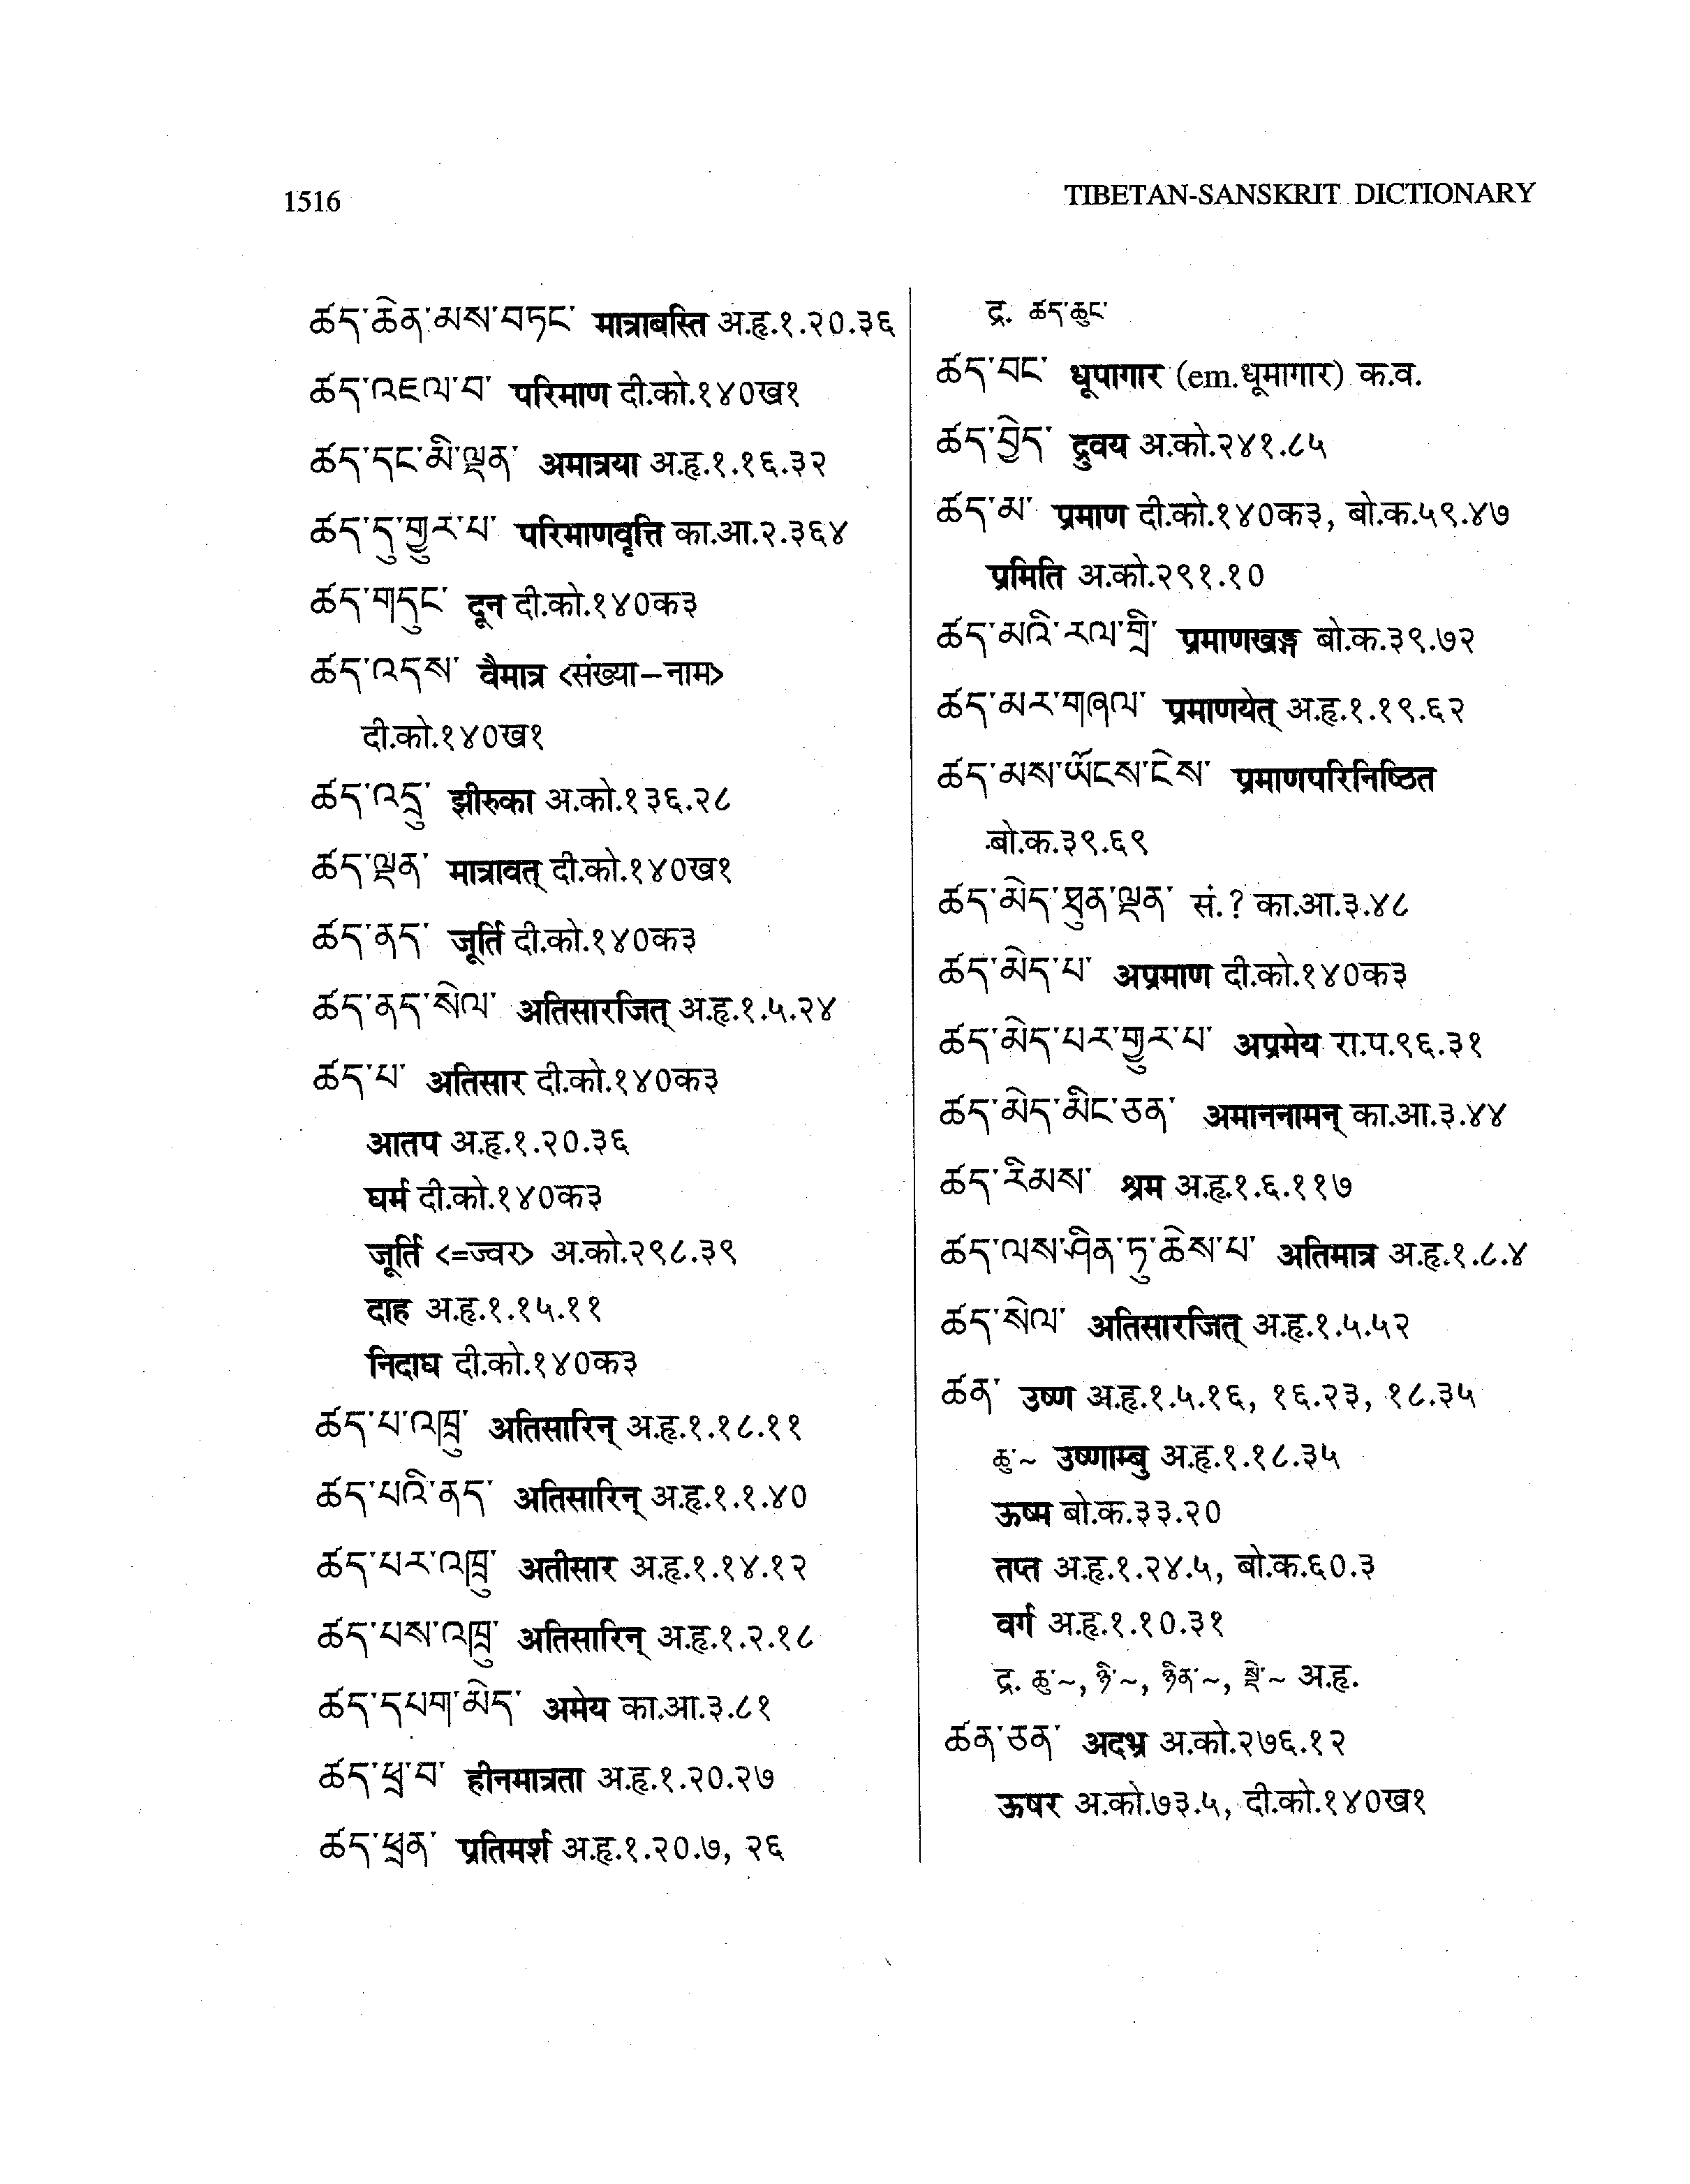 1516
TIBETAN-SANSKRIT DICTIONARY
ཚད་ཆེན་མས་བཏང་ मात्राबस्ति अ.हृ.१.२०.३६
ཚད་འཇལ་བ་ परिमाण दी.को.१४०ख१
ཚད་དང་མི་ལྡན་ अमात्रया अ.हृ.१.१६.३२
ཚད་དུ་གྱུར་པ་ परिमाणवृत्ति का.आ.२.३६४
ཚད་གདུང་ दून दी.को.१४०क३
ཚད་འདས་ वैमात्र <संख्या-नाम>
दी.को.१४०ख१
ཚད་འདྲུ་ झीरुका अ.को.१३६.२८
ཚད་ལྡན་ मात्रावत् दी.को.१४०ख१
ཚད་ནད་ जूर्ति दी.को.१४०क३
ཚད་ནད་སེལ་ अतिसारजित् अ.हृ.१.५.२४
ཚད་པ་ अतिसार दी.को.१४०क३
आतप अ.हृ.१.२०.३६
घर्म दी.को.१४०क३
जूर्ति <=ज्वर> अ.को.२९८.३९
दाह अ.हृ.१.१५.११
निदाघ दी.को.१४०क३
ཚད་པ་འཁྲུ་ अतिसारिन् अ.हृ.१.१८.११
ཚད་པའི་ནད་ अतिसारिन् अ.हृ.१.१.४०
ཚད་པར་འཁྲུ་ अतीसार अ.हृ.१.१४.१२
ཚད་པས་འཁྲུ་ अतिसारिन् अ.हृ.१.२.१८
ཚད་དཔག་མེད་ अमेय का.आ.३.८१
ཚད་ཕྲ་བ་ हीनमात्रता अ.हृ.१.२०.२७
ཚད་ཕྲན་ प्रतिमर्श अ.हृ.१.२०.७, २६
द्र. ཚད་ཆུང་
ཚད་བང་ धूपागार (em.धूमागार) क.व.
ཚད་བྱེད་ द्रुवय अ.को.२४१.८५
ཚད་མ་ प्रमाण दी.को.१४०क३, बो.क.५९.४७
प्रमिति अ.को.२९१.१०
ཚད་མའི་རལ་གྲི་ प्रमाणखड्ग बो.क.३९.७२
ཚད་མར་གཞལ་ प्रमाणयेत् अ.हृ.१.१९.६२
ཚད་མས་ཡོངས་ངེས་ प्रमाणपरिनिष्ठित
बो.क.३९.६९
ཚད་མེད་ཐུན་ལྡན་ सं.? का.आ.३.४८
ཚད་མེད་པ་ अप्रमाण दी.को.१४०क३
ཚད་མེད་པར་གྱུར་པ་ अप्रमेय रा.प.९६.३१
ཚད་མེད་མིང་ཅན་ अमाननामन् का.आ.३.४४
ཚད་རིམས་ श्रम अ.हृ.१.६.११७
ཚད་ལས་ཤིན་ཏུ་ཆེས་པ་ अतिमात्र अ.हृ.१.८.४
ཚད་སེལ་ अतिसारजित् अ.हृ.१.५.५२
ཚན་ उष्ण अ.हृ.१.५.१६, १६.२३, १८.३५
ཆུ་~ उष्णाम्बु अ.हृ.१.१८.३५
ऊष्म बो.क.३३.२०
तप्त अ.हृ.१.२४.५, बो.क.६०.३
वर्ग अ.हृ.१.१०.३१
द्र. ཆུ་~, ཉི་~, ཉིན་~, སྡེ་~ अ.हृ.
ཚན་ཅན་ अदभ्र अ.को.२७६.१२
ऊषर अ.को.७३.५, दी.को.१४०ख१